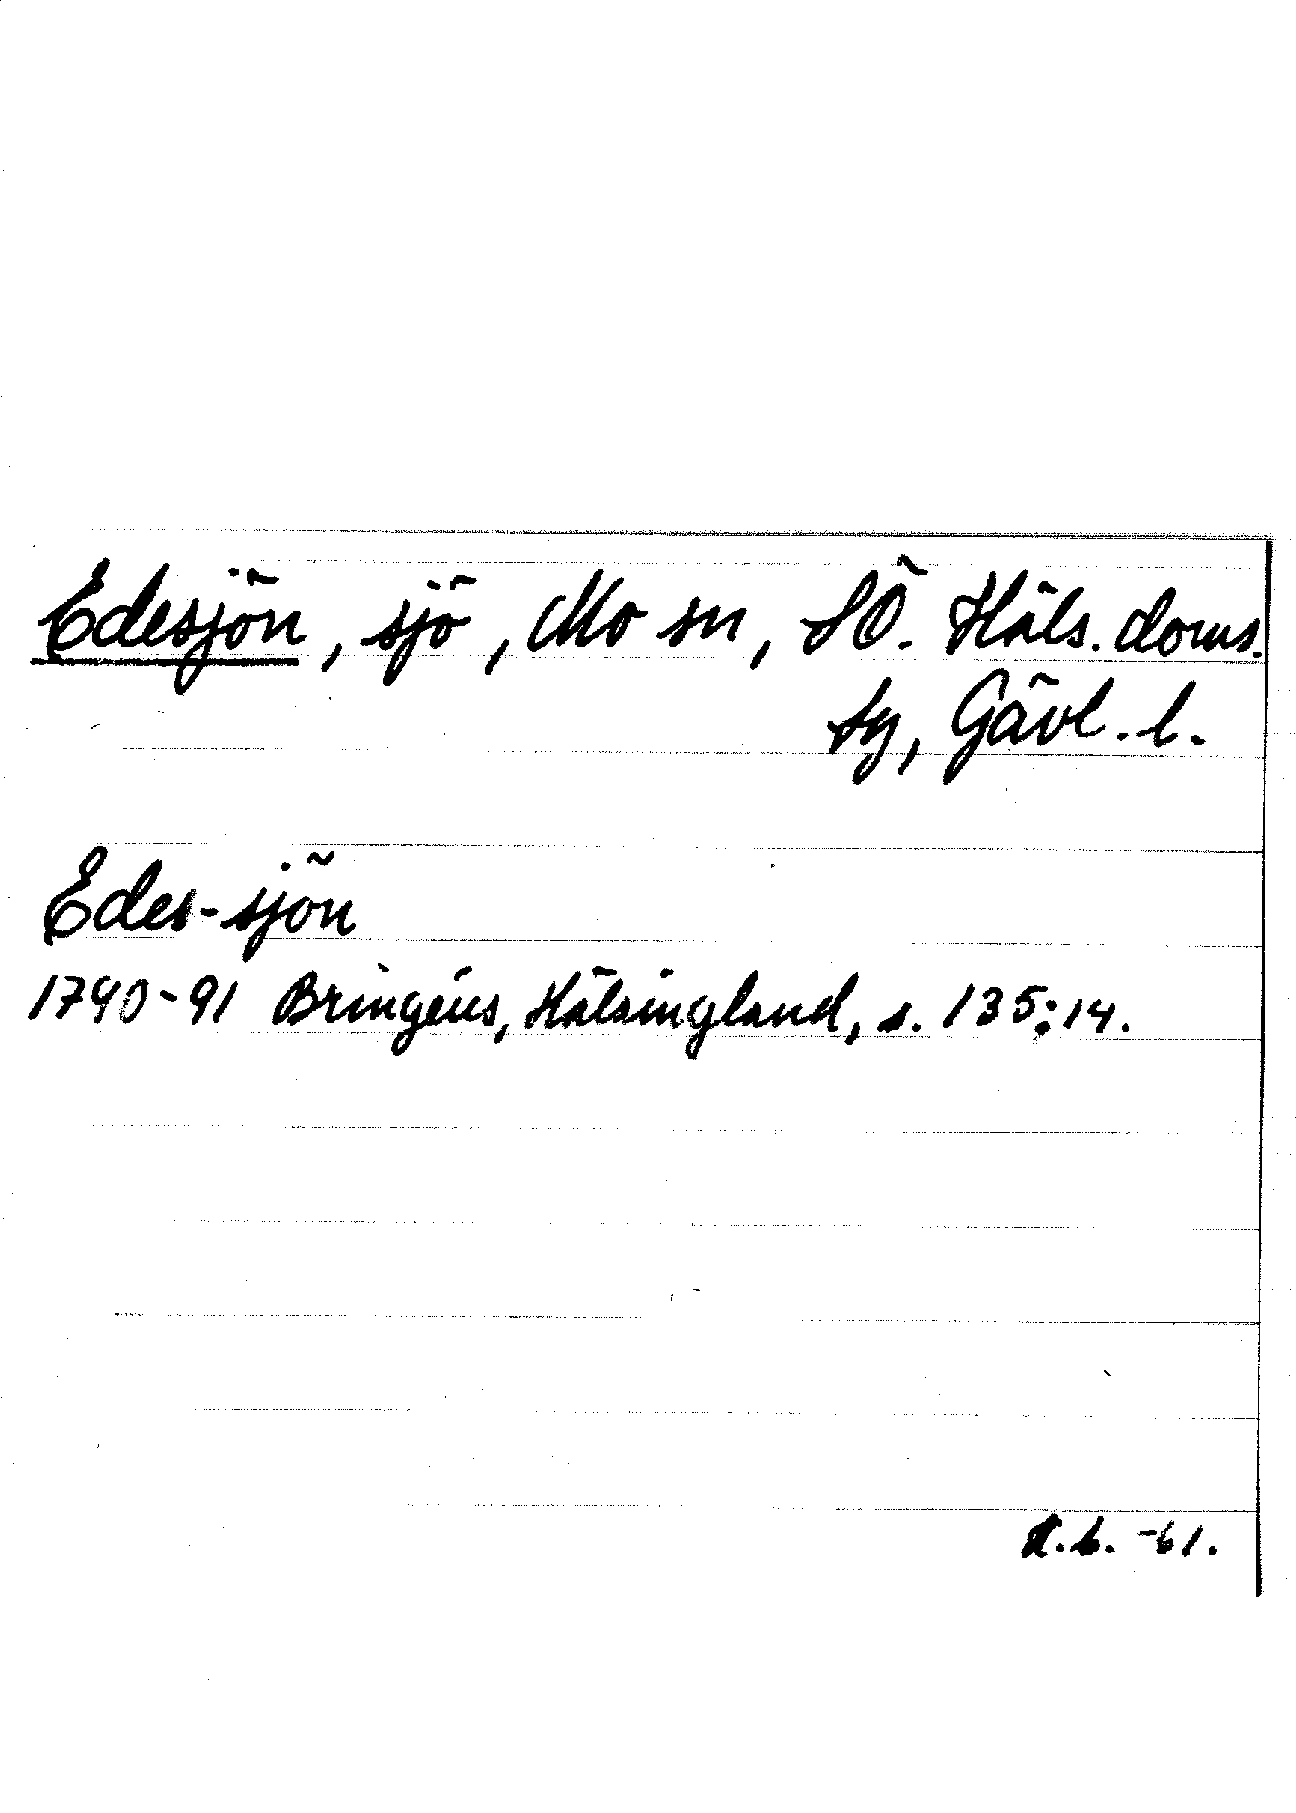 Edesjön, sjö, Mo sn, SÖ. Häls. doms.
sg, Gävl. l.
Edes-sjön
1790-91 Bringéus, Hälsingland, s. 135:14.
-61.